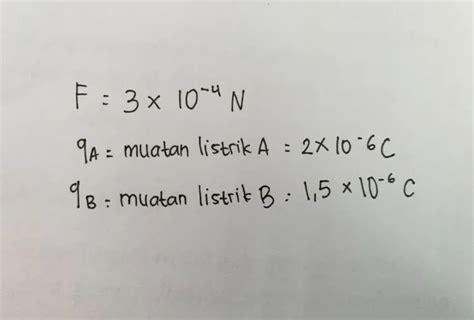 F = 3 × 10⁻⁴ N
qA = muatan listrik A = 2×10⁻⁶ C
qB = muatan listrik B = 1,5 × 10⁻⁶ C